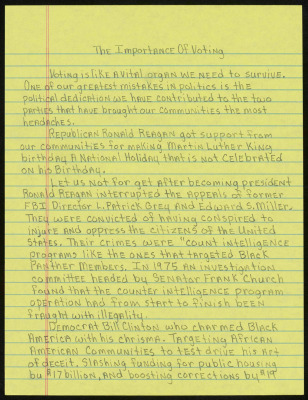 The Importance Of Voting
Voting is like a vital organ we need to survive.
One of our greatest mistakes in politics is the
political dedication we have contributed to the two
parties that have brought our communities the most
headaches.
Republican Ronald Reagan got support from
our communities for making Martin Luther King
birthday A National Holiday that is not celebrated
on his Birthday.
Let us not for get after becoming president
Ronald Reagan interrupted the appeals of former
FBI Director L. Patrick Gray and Edward S. Miller.
They were convicted of having conspired to
injure and oppress the citizens of the United
States. Their crimes were "count intelligence
programs like the ones that targeted Black
Panther Members. In 1975 an investigation
committee headed by Senator Frank Church
found that the counter intelligence program
operation had from start to finish been
fraught with illegality.
Democrat Bill Clinton who charmed Black
America with his charisma. Targeting African
American Communities to test drive his art
of deceit. Slashing funding for public housing
by $17 billion, and boosting corrections by $19